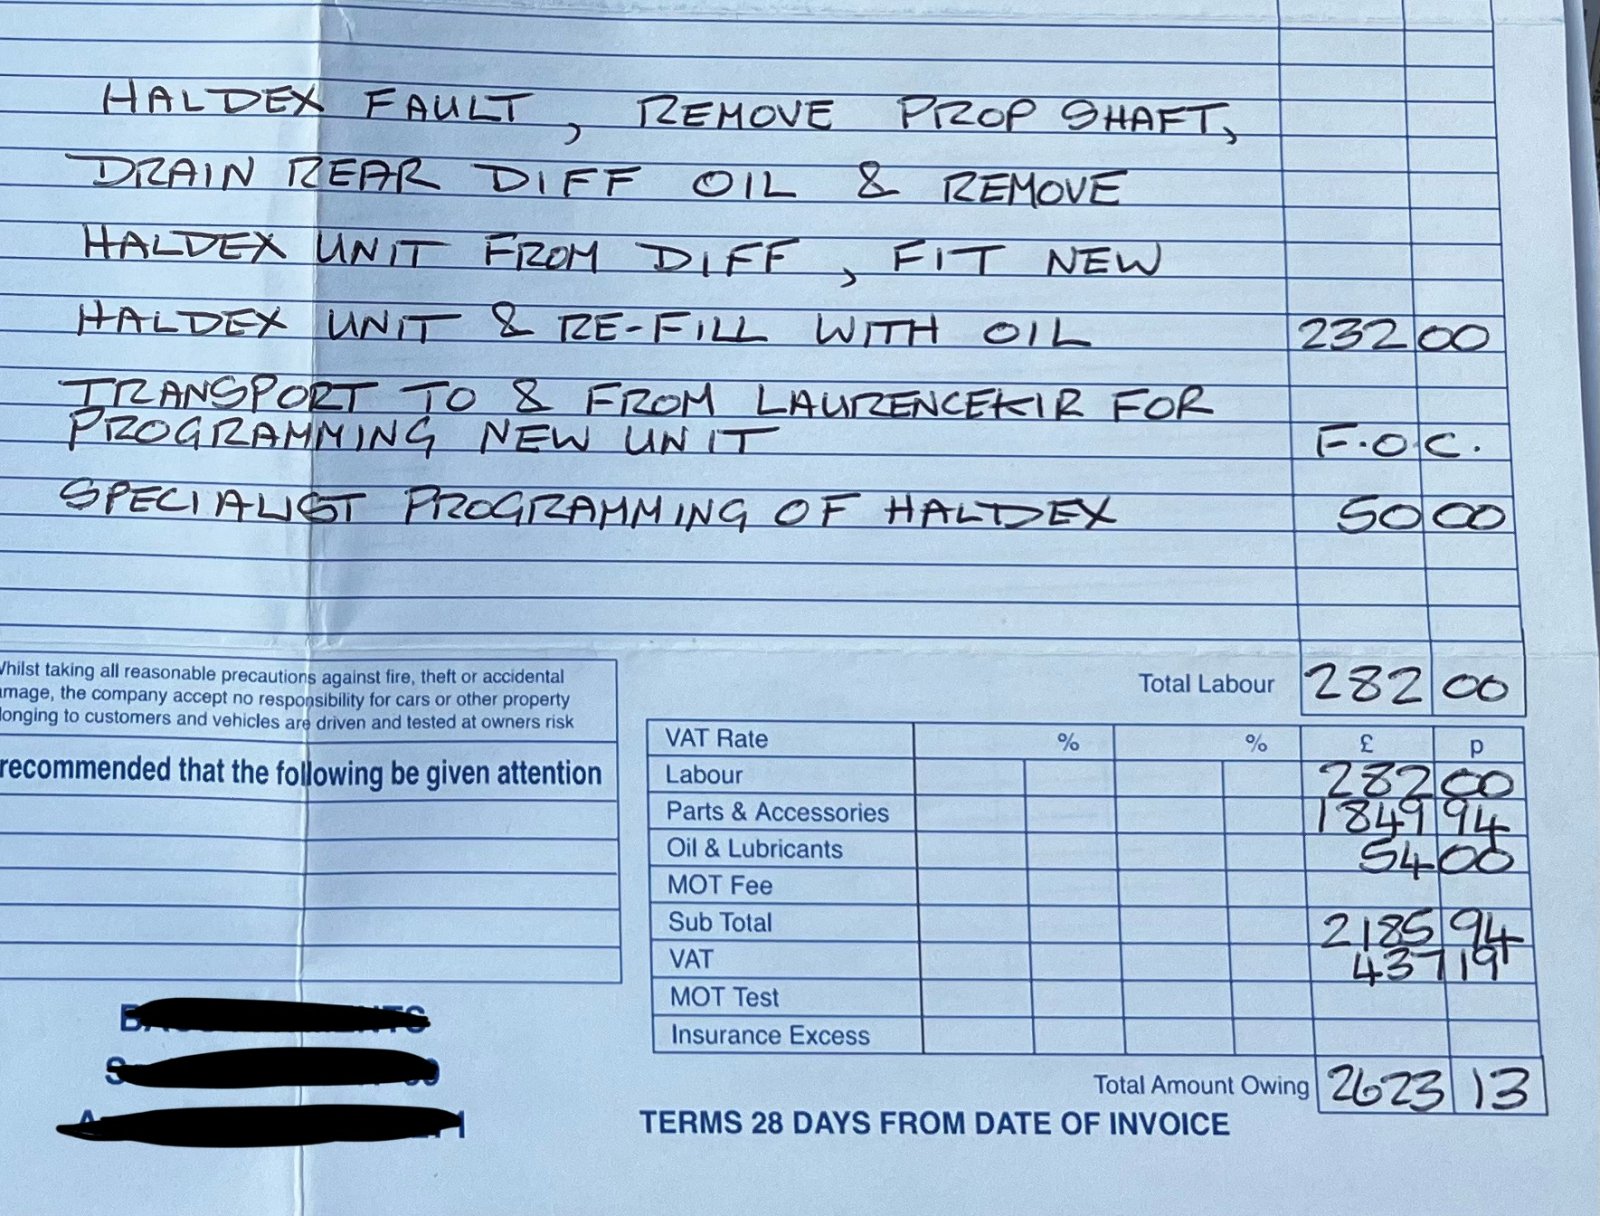 HALDEX FAULT, REMOVE PROP SHAFT,
DRAIN REAR DIFF OIL & REMOVE
HALDEX UNIT FROM DIFF, FIT NEW
HALDEX UNIT & RE-FILL WITH OIL 232 00
TRANSPORT TO & FROM LAURENCEKIR FOR
PROGRAMMING NEW UNIT F.O.C.
SPECIALIST PROGRAMMING OF HALDEX 50 00
Whilst taking all reasonable precautions against fire, theft or accidental
amage, the company accept no responsibility for cars or other property
longing to customers and vehicles are driven and tested at owners risk
recommended that the following be given attention
Total Labour 282 00
VAT Rate % % £ p
Labour 282 00
Parts & Accessories 1849 94
Oil & Lubricants 54 00
MOT Fee
Sub Total 2185 94
VAT 437 19
MOT Test
Insurance Excess
Total Amount Owing 2623 13
TERMS 28 DAYS FROM DATE OF INVOICE